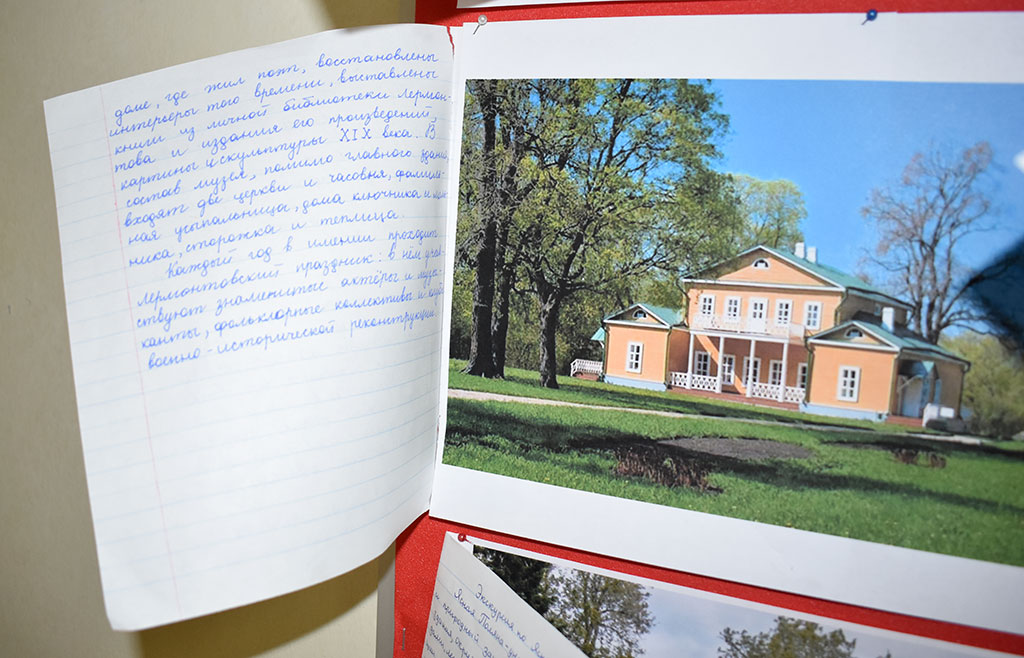 доме, где жил поэт, восстановлены
интерьеры того времени, выставлены
книги из личной библиотеки Лермон-
това и издания его произведений,
картины и скульптуры XIX века. В
состав музея, помимо главного здания,
входят две церкви и часовня, фамиль-
ная усыпальница, дома ключника и
ника, сторожка и теплица.
Каждый год в имении проходит
Лермонтовский праздник: в нём учав-
ствуют знаменитые актёры и музы-
канты, фольклорные коллективы и клубы
военно-исторической реконструкции.
Экскурсия по
Ясная Поляна
и природный